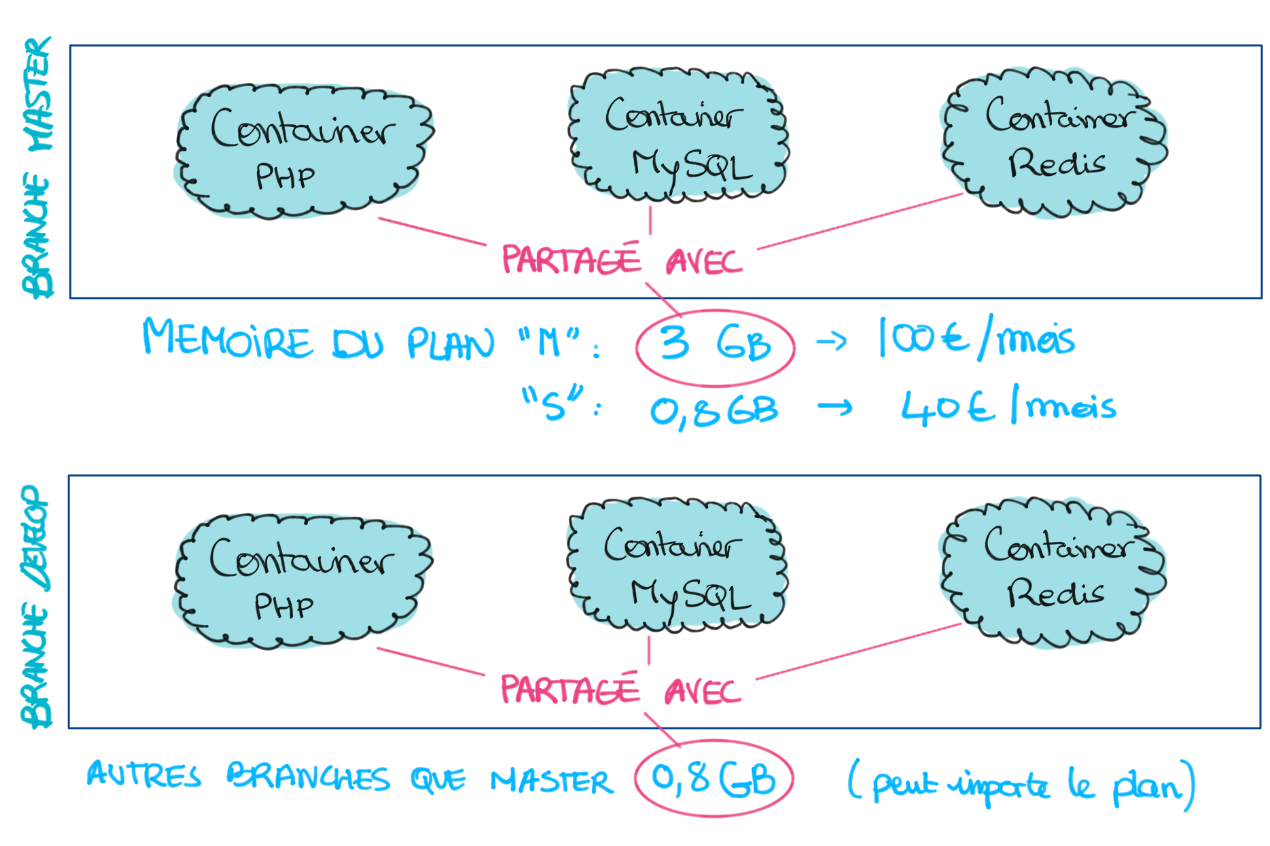 BRANCHE MASTER
Container
PHP
Container
MySQL
Container
Redis
PARTAGÉ AVEC
MEMOIRE DU PLAN "M": 3 GB → 100€/mois
"S": 0,8GB → 40€/mois
BRANCHE DEVELOP
Container
PHP
Container
MySQL
Container
Redis
PARTAGÉ AVEC
AUTRES BRANCHES QUE MASTER 0,8GB (peut importe le plan)